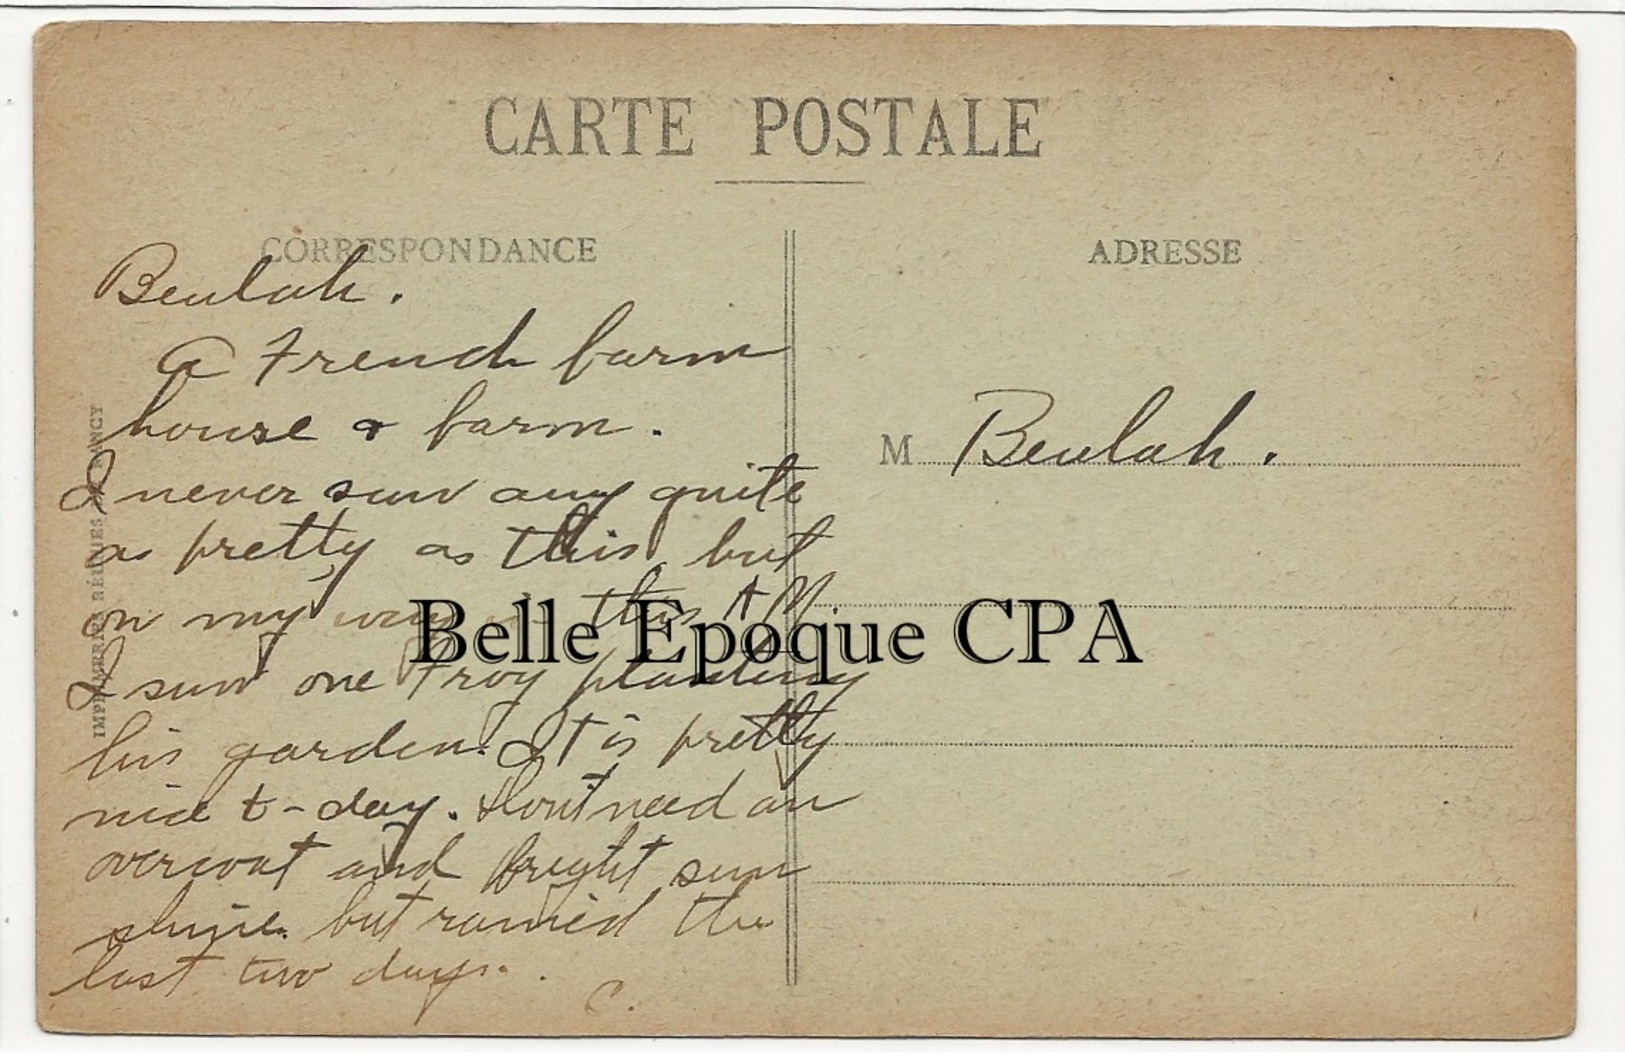 CARTE POSTALE
CORRESPONDANCE
ADRESSE
Beulah.
a French farm
house & farm.
I never saw any quite
as pretty as this, but
on my way in this AM
I saw one Frog planting
his garden. It is pretty
nice t-day. Dont need an
overcoat and bright sun
shine. but rained the
last two days.
C.
M Beulah.
IMPRIMERIES RÉUNIES DE NANCY
Belle Epoque CPA